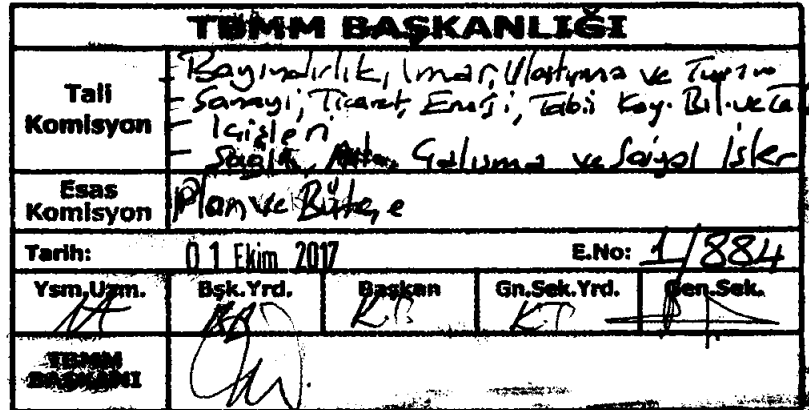 TBMM BAŞKANLIĞI
Tali Komisyon
- Bayındırlık, İmar, Ulaştırma ve Turizm
- Sanayi, Ticaret, Enerji, Tabii Kay. Bil. ve
- İçişleri
- Sağlık, Çalışma ve Sosyal İşler
Esas Komisyon
Plan ve Bütçe
Tarih: 01 Ekim 2017 E.No: 1/884
Ysm.Uzm. Bşk.Yrd. Başkan Gn.Sek.Yrd. Gen.Sek.
K.B K.T
TBMM BAŞKANI